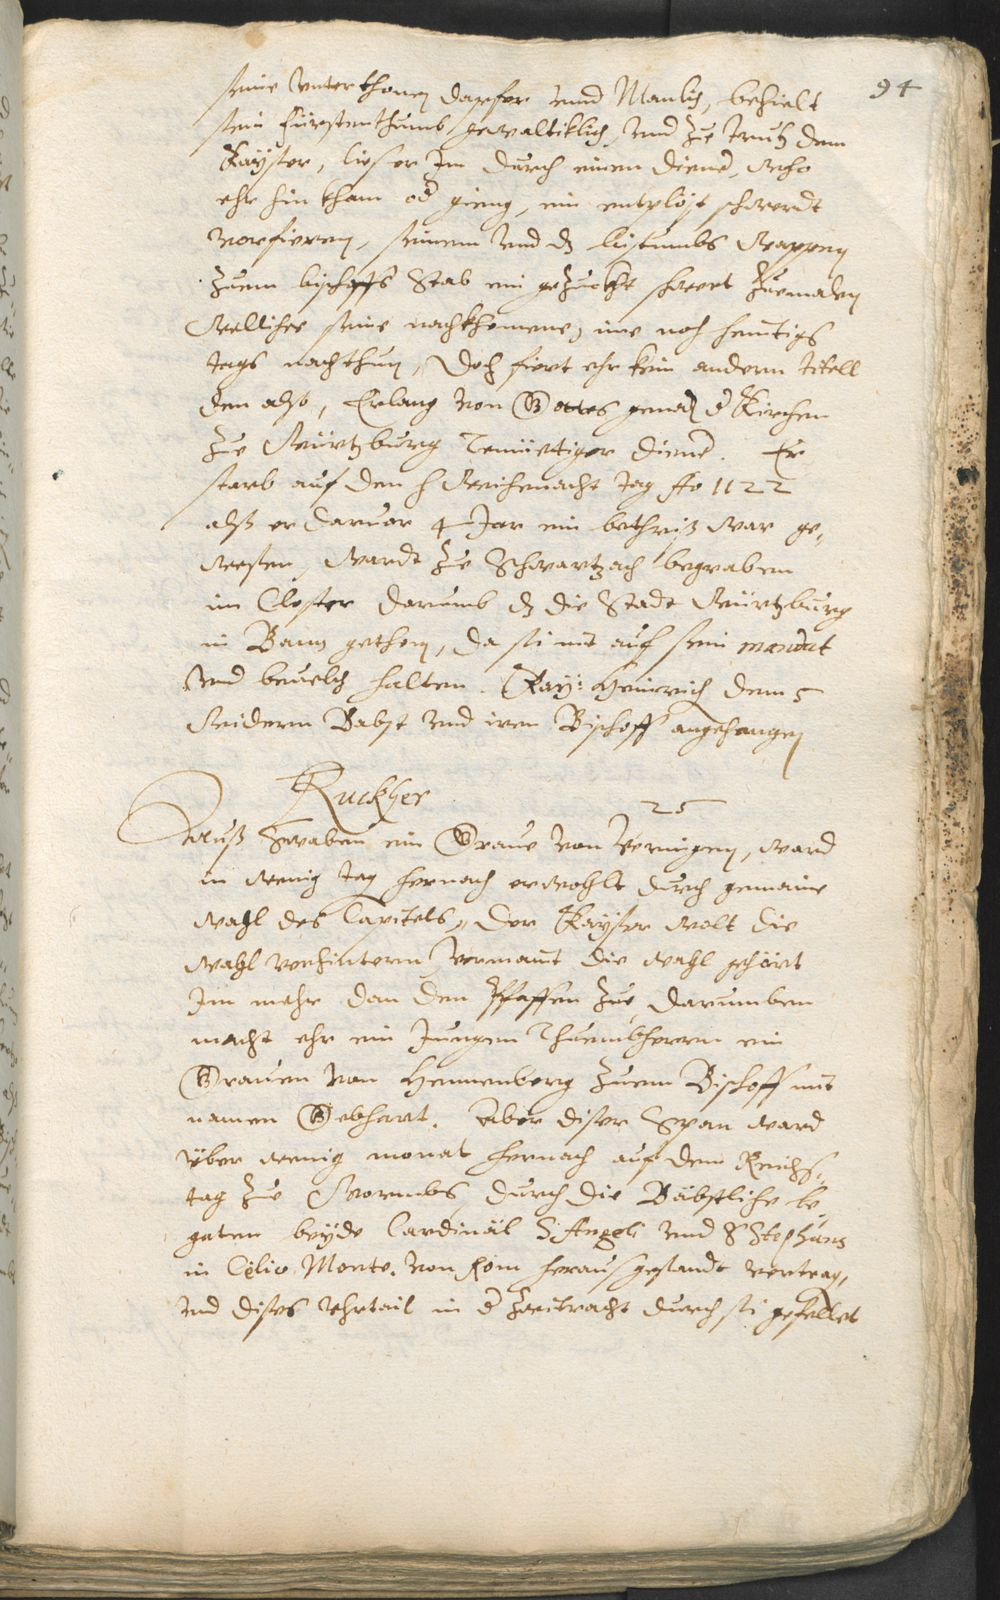 94
seine Unterthonen dapfer unnd Manlich, behielt
sein Fürstenthumb gewaltiklich, und zue trutz dem
Kayser, lies er Im durch einen diener, Who
ehr hin kham od gieng, ein entplöst schwerdt
vorfieren, seinem und dz bistumbs Wappen
zuem bischoffs Stab ein gezuckht schwert zuemalen
Wellches seine nachkhomene, ime noch heuttigs
tags nachthun, Doch fiert ehr kein andern titell
den also, Erlang von Gottes genad d Kirchen
zue Würtzburg Demüettiger diener. Er
starb auf den h Weihenacht tag Ao 1122
alß er daruor 4 Jar ein bethriß war ge„
wessen, Wardt zue Schwartzach begraben
im Closter darumb dz die Stadt Würtzburg
in Bann gethon, da si nit auf sein mandat
und beuelch halten. Kay: Heinrich dem 5
Widerm Babst und iren Bischoff angehangen
Ruckher 25
Auß Swaben ein Graue von Veringen, ward
in wenig tag hernach erwohlt durch gemaine
wahl des Capitels„ Der Kayser wolt die
wahl verhintern, vermaint die wahl gehört
Im mehr dan den Pfaffen zue, darumben
macht ehr ein Jungen Thuembherrn ein
Grauen von Hennenberg zuem Bischoff mit
namen Gebhart. Aber diser Span ward
yber wenig monat hernach auf dem Reichs„
tag zue Wormbs, durch die Bäbstliche le„
gaten beyde Cardinäl S Angeli und S Stephans
in Celio Monte. von Rom heraus gesandt vertrag,
und dises Uhrtail in d Zwitracht durch si gefellet